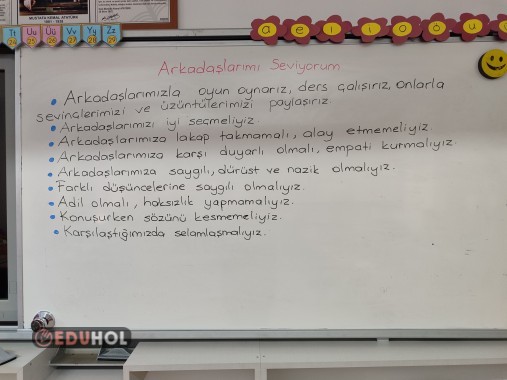 MUSTAFA KEMAL ATATÜRK
1881 - 1938
Tt Uu Üü Vv Yy Zz
24 25 26 27 28 29
a e ı i o ö u
Arkadaşlarımı Seviyorum
• Arkadaşlarımızla oyun oynarız, ders çalışırız, onlarla
sevinçlerimizi ve üzüntülerimizi paylaşırız.
• Arkadaşlarımızı iyi seçmeliyiz.
• Arkadaşlarımıza lakap takmamalı, alay etmemeliyiz.
• Arkadaşlarımıza karşı duyarlı olmalı, empati kurmalıyız.
• Arkadaşlarımıza saygılı, dürüst ve nazik olmalıyız.
• Farklı düşüncelerine saygılı olmalıyız.
• Adil olmalı, haksızlık yapmamalıyız.
• Konuşurken sözünü kesmemeliyiz.
• Karşılaştığımızda selamlaşmalıyız.
EDUHOL